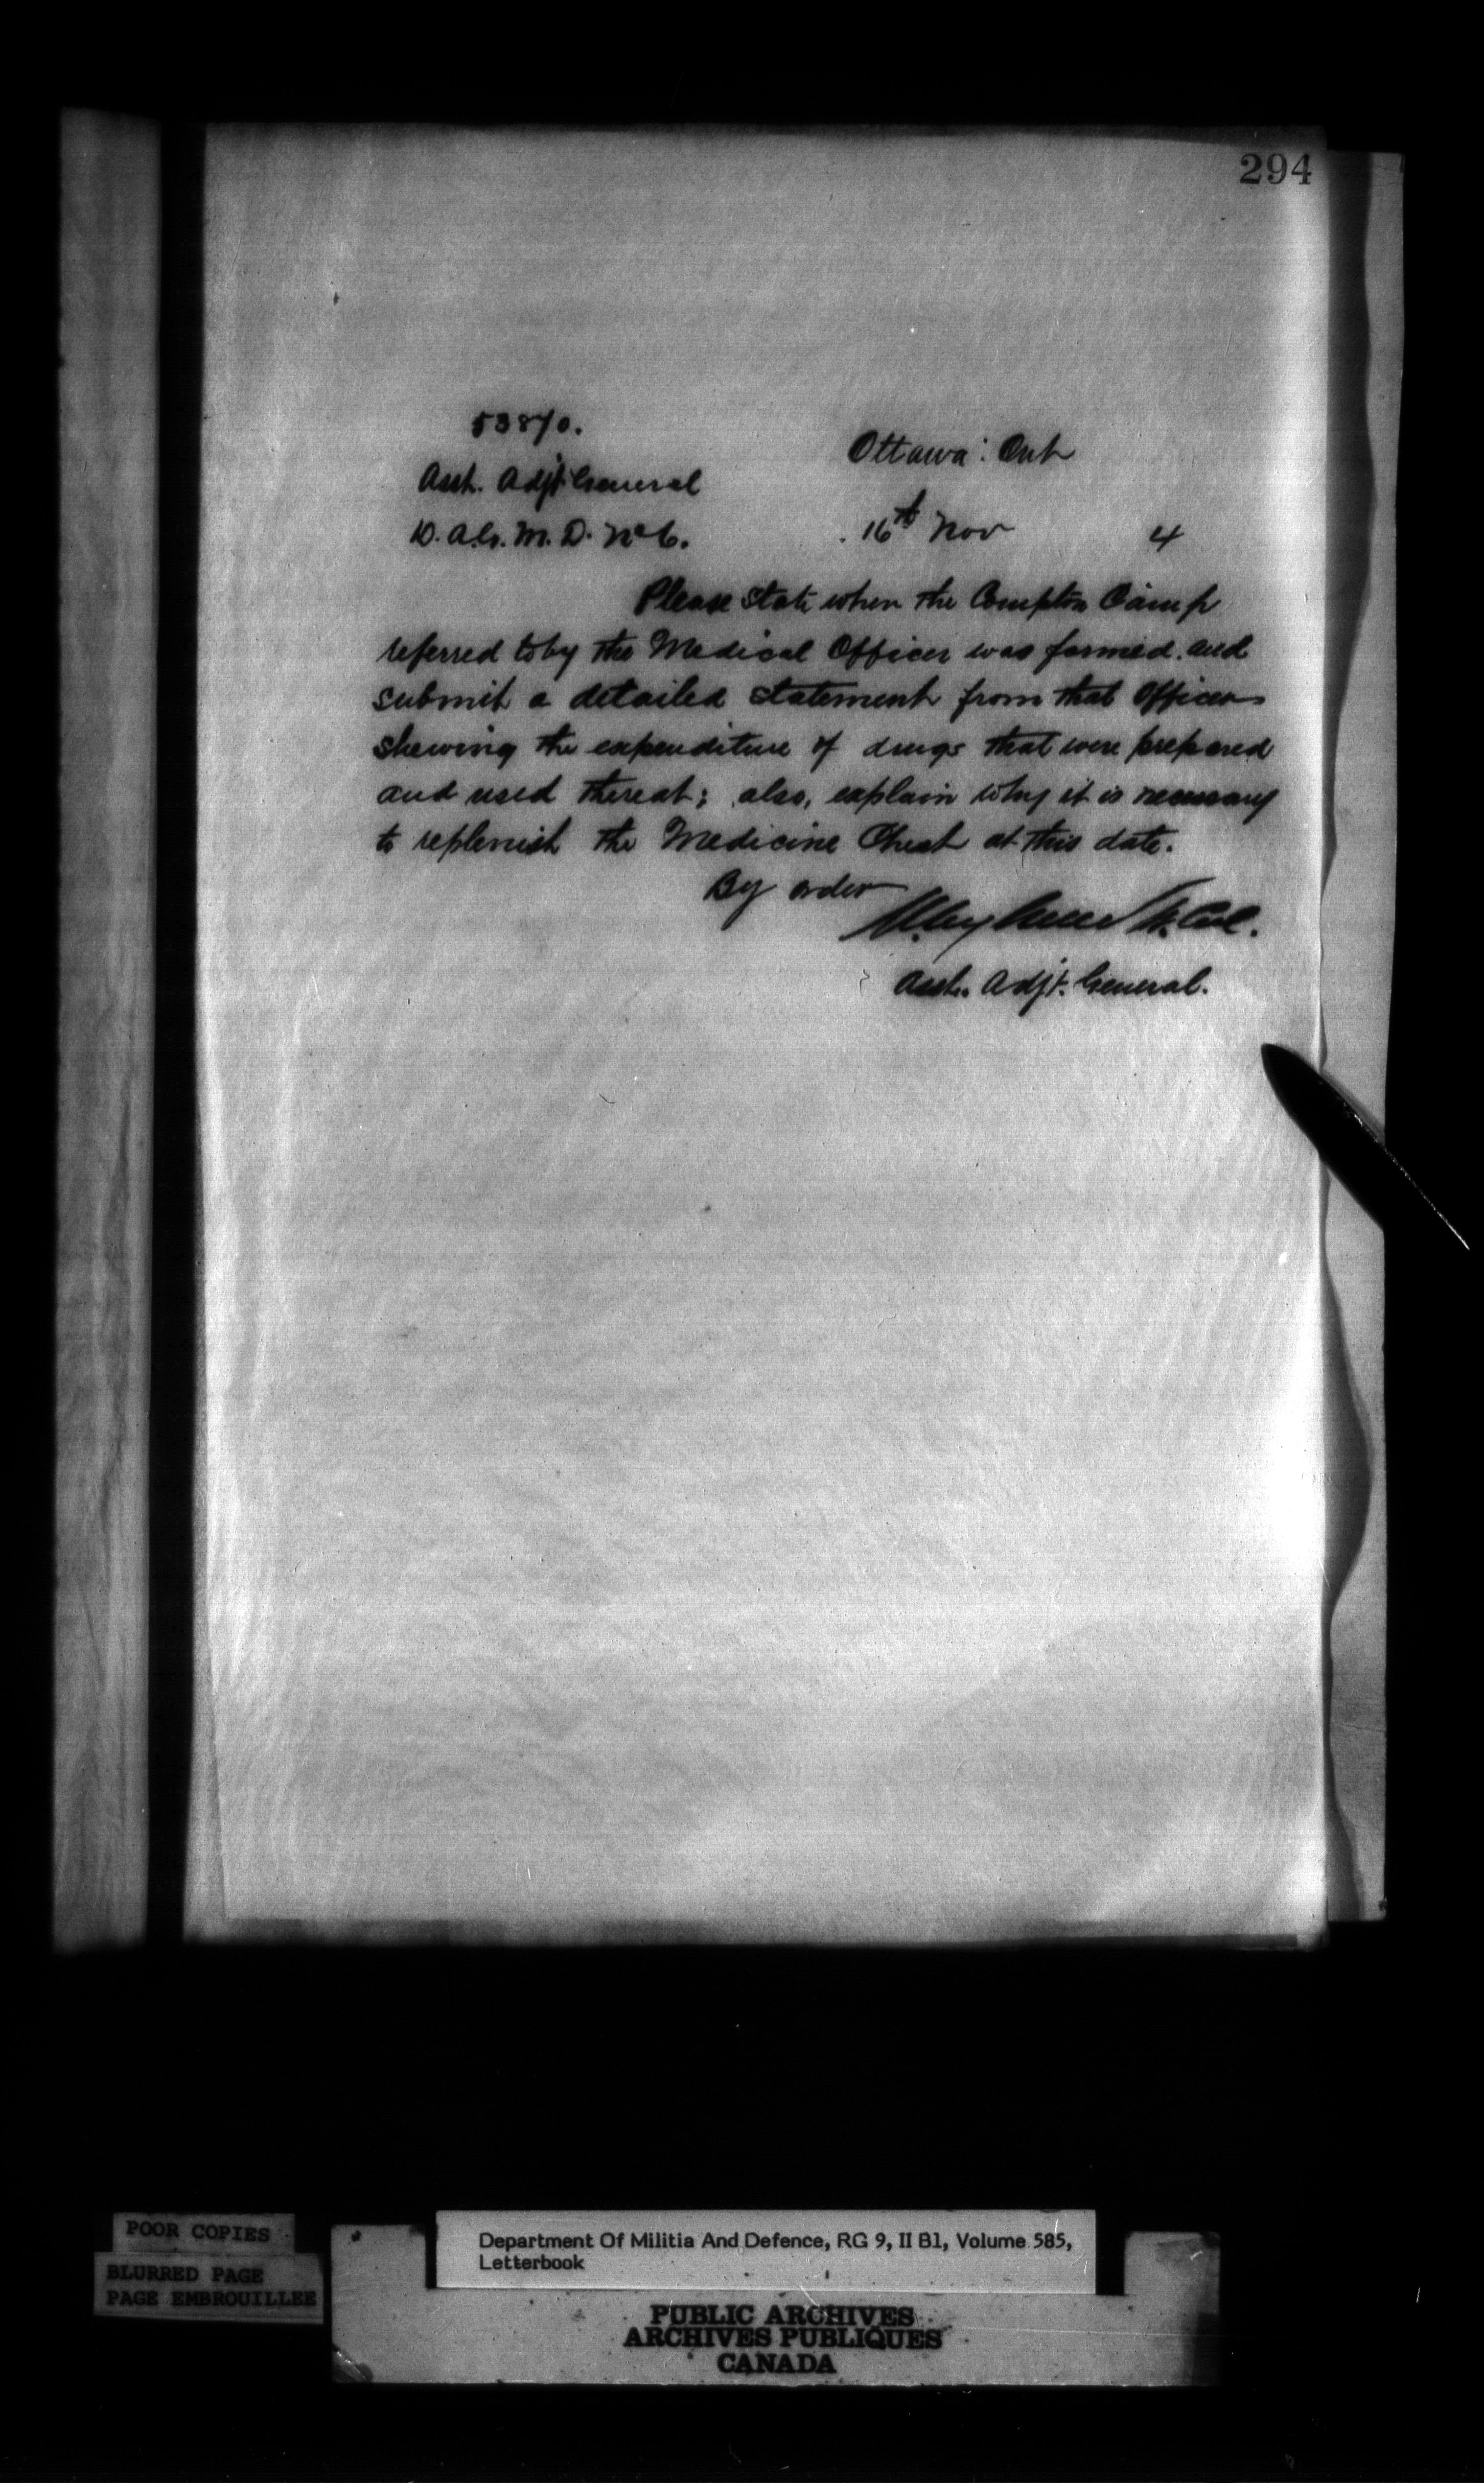 294
53870.
Ottawa: Ont
Asst. Adjt General
D. A. G. M. D. No 6.
16th Nov 4
Please state when the Compton Camp
referred to by the Medical Officer was formed. and
submit a detailed statement from that Officer
shewing the expenditure of drugs that were prepared
and used thereat; also, explain why it is necessary
to replenish the Medicine Chest at this date.
By order
Lt. Col.
Asst. Adjt. General.
POOR COPIES
BLURRED PAGE
PAGE EMBROUILLEE
Department Of Militia And Defence, RG 9, II B1, Volume 585,
Letterbook
PUBLIC ARCHIVES
ARCHIVES PUBLIQUES
CANADA